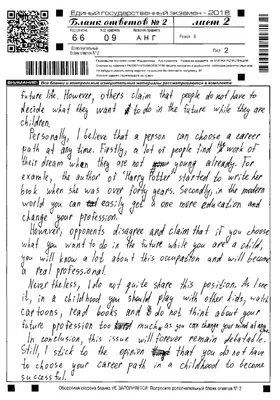 Единый государственный экзамен - 2018
Бланк ответов № 2
лист 2
Код региона
Код предмета
Название предмета
Резерв - 8
66
09
АНГ
Дополнительный бланк ответов № 2
Лист 2
ВНИМАНИЕ!
Все бланки и контрольные измерительные материалы рассматриваются в комплекте
future life. However, others claim that people do not have to
decide what they want to do in the future while they are
children.
Personally, I believe that a person can choose a career
path at any time. Firstly, a lot of people find work of
their dream when they are not young already. For
example, the author of "Harry Potter" started to write her
book when she was over forty years. Secondly, in the modern
world you can easily get one more education and
change your profession.
However, opponents disagree and claim that if you choose
what you want to do in the future while you are a child,
you will know a lot about this occupation and will become
a real professional.
Nevertheless, I do not quite share this position. As I see
it, in a childhood you should play with other kids, watch
cartoons, read books and do not think about your
future profession too much, as you can change your mind at any time.
In conclusion, this issue will forever remain debatable.
Still, I stick to the opinion that you do not have
to choose your career path in a childhood to become
successful.
Оборотная сторона бланка НЕ ЗАПОЛНЯЕТСЯ. Попросите дополнительный бланк ответов № 2